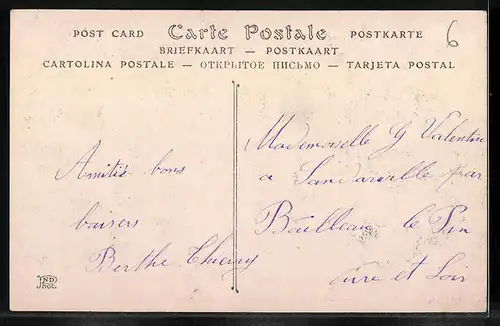 POST CARD Carte Postale POSTKARTE
BRIEFKAART — POSTKAART
CARTOLINA POSTALE — ОТКРЫТОЕ ПИСЬМО — TARJETA POSTAL
6
Amitié bons
baisers
Berthe Thierry
Mademoiselle G Valentin
a Sandarville par
Bailleau le Pin
Eure et Loir
ND
PHOT